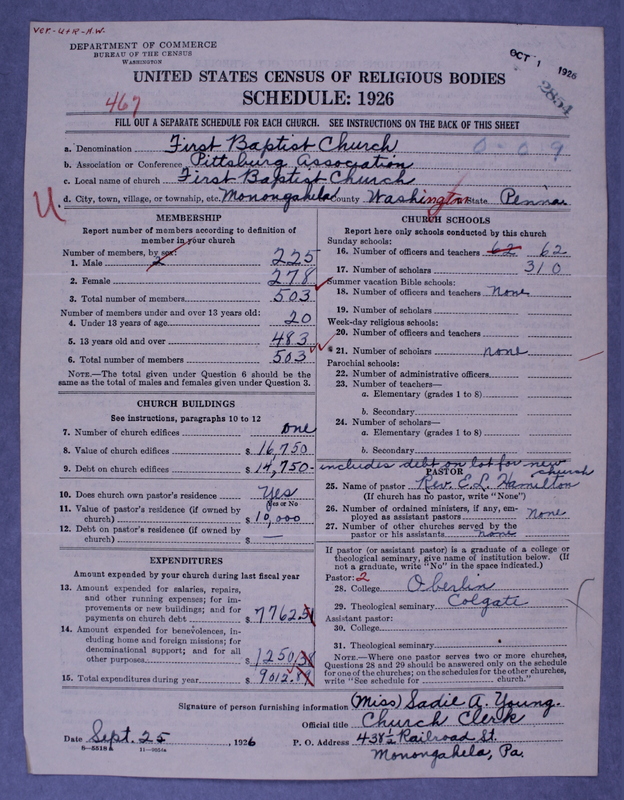 Ver.-U+R-A.W.
DEPARTMENT OF COMMERCE
BUREAU OF THE CENSUS
WASHINGTON
OCT 1 1926
2854
UNITED STATES CENSUS OF RELIGIOUS BODIES
SCHEDULE: 1926
467
FILL OUT A SEPARATE SCHEDULE FOR EACH CHURCH. SEE INSTRUCTIONS ON THE BACK OF THIS SHEET
a. Denomination First Baptist Church 0-09
b. Association or Conference Pittsburg Association
c. Local name of church First Baptist Church
d. City, town, village, or township, etc. Monongahela County Washington State Penna
U
MEMBERSHIP
Report number of members according to definition of
member in your church
Number of members, by sex:
1. Male 2 225
2. Female 278
3. Total number of members 503
Number of members under and over 13 years old:
4. Under 13 years of age 20
5. 13 years old and over 483
6. Total number of members 503
NOTE.—The total given under Question 6 should be the
same as the total of males and females given under Question 3.
CHURCH BUILDINGS
See instructions, paragraphs 10 to 12
7. Number of church edifices one
8. Value of church edifices $ 16,750
9. Debt on church edifices $ 14,750- includes debt on lot for new church
10. Does church own pastor's residence Yes
Yes or No
11. Value of pastor's residence (if owned by
church) $ 10,000
12. Debt on pastor's residence (if owned by
church) $ —
EXPENDITURES
Amount expended by your church during last fiscal year
13. Amount expended for salaries, repairs,
and other running expenses; for im-
provements or new buildings; and for
payments on church debt $ 7762.51
14. Amount expended for benevolences, in-
cluding home and foreign missions; for
denominational support; and for all
other purposes $ 1250.38
15. Total expenditures during year $ 9012.89
CHURCH SCHOOLS
Report here only schools conducted by this church
Sunday schools:
16. Number of officers and teachers 62 62
17. Number of scholars 310
Summer vacation Bible schools:
18. Number of officers and teachers none
19. Number of scholars
Week-day religious schools:
20. Number of officers and teachers
21. Number of scholars none
Parochial schools:
22. Number of administrative officers
23. Number of teachers—
a. Elementary (grades 1 to 8)
b. Secondary
24. Number of scholars—
a. Elementary (grades 1 to 8)
b. Secondary
PASTOR
25. Name of pastor Rev. E. L. Hamilton
(If church has no pastor, write "None")
26. Number of ordained ministers, if any, em-
ployed as assistant pastors none
27. Number of other churches served by the
pastor or his assistants none
If pastor (or assistant pastor) is a graduate of a college or
theological seminary, give name of institution below. (If
not a graduate, write "No" in the space indicated.)
Pastor: 2
28. College Oberlin
29. Theological seminary Colgate
Assistant pastor:
30. College
31. Theological seminary
NOTE.—Where one pastor serves two or more churches,
Questions 28 and 29 should be answered only on the schedule
for one of the churches; on the schedules for the other churches,
write "See schedule for church."
Signature of person furnishing information (Miss) Sadie A. Young.
Official title Church Clerk
Date Sept. 25, 1926 P. O. Address 438½ Railroad St.
Monongahela, Pa.